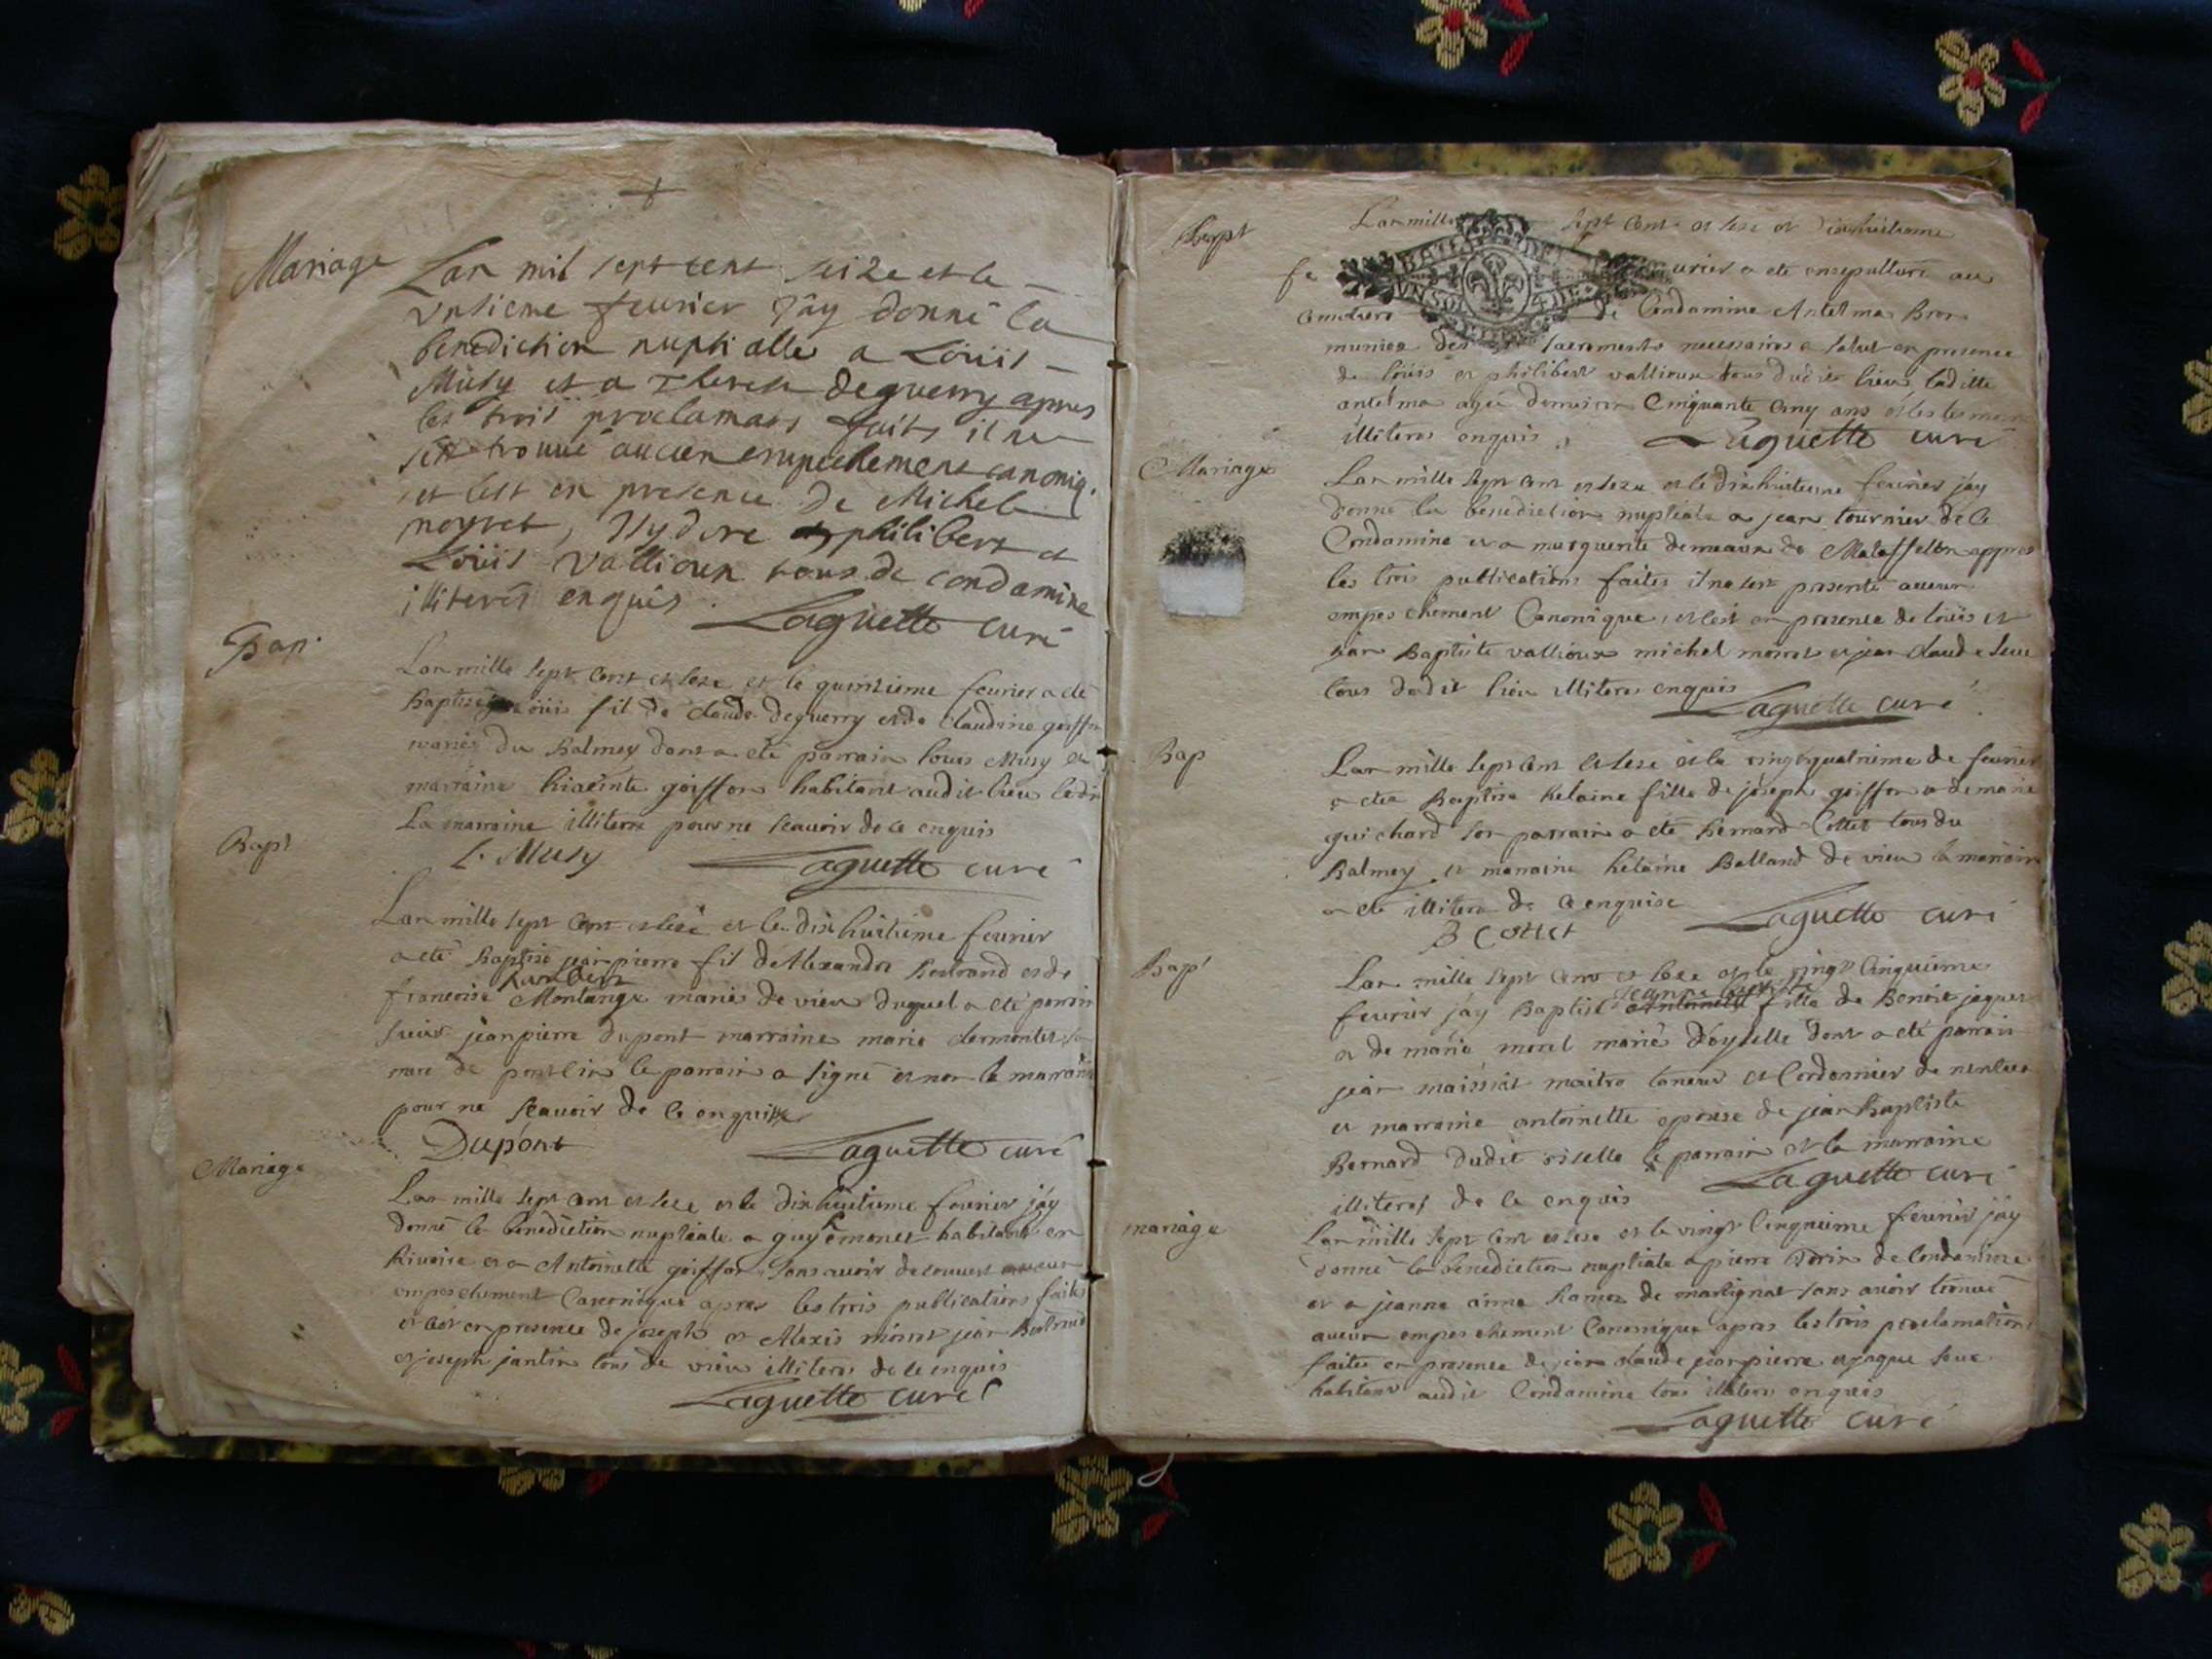 Mariage
Lan mil sept cent seize et le
unsieme feurier Jáy donné la
benediction nuptialle a Loüis
Musy et a Deguerry apres
les trois proclamaós faits il ne
trouué aucun empechement canoniq.
et cest en presence De Michel
Isydore philibert et
Loüis Vallioux tous de condamine
illiterés enquis. Laguette curé
Bap.
Lan mille sept cent et seze et le quinzieme feurier a eté
Baptisé fil de claude deguerry et de claudine goiffon
mariés du Balmey dont a eté parrain louis Musy et
marraine hiacinte goiffon habitant audit lieu
La marraine illitere pour ne scauoir de ce enquis
L. Musy Laguette curé
Bapt
Lan mille sept cent et seze et le dixhuitieme feurier
a eté Baptisé jean pierre fil dAlexandre Bertrand et de
francoise Montange mariés de vieu duquel a eté parrain
sieur jean pierre dupont marraine marie
de le parrain a signé et non la marraine
pour ne scauoir de ce enquise
Dupont Laguette curé
Mariage
Lan mille sept cent et seze et le dixhuitieme feurier jáy
donné la benediction nuptiale a guy emonet habitant en
Riuoire et a Antoinette goiffon sans auoir decouuert aucun
empeschement Canonique apres les trois publications faites
et cest en presence de joseph et Alexis jean Bertrand
et joseph jantin tous de vieu illiteres de ce enquis
Laguette curé
Lan mille sept cent et seze et dixhuitieme
fe urier a eté ensepulturé au
cimetiere de Condamine Antelma
munies des sacrements necessaires a salut en presence
de loüis et philibert vallioux tous dudit lieu laditte
antelma agée denuiron Cinquante cinq ans
illiteres enquis Laguette curé
Mariage
Lan mille sept cent et seze et le dixhuitieme feurier jáy
donné la benediction nuptiale a jean tournier de le
Condamine et a marguerite de appres
les trois publications faites il ne sest presenté aucun
empeschement Canonique, et cest en presence de loüis et
jean Baptiste vallioux michel et jean claude
tous dudit lieu illiteres enquis
Laguette curé
Bap
Lan mille sept cent et seze et le vingtquatrieme de feurier
a eté Baptisé helaine fille de joseph goiffon et de marie
guichard son parrain a eté Bernard Cottet tous du
Balmey et marraine helaine Balland de vieu la marraine
a eté illitere de ce enquise
B Cottet Laguette curé
Bap
Lan mille sept cent et seze et le vingt Cinquieme
feurier jáy Baptisé fille de Benoit jaques
et de marie morel mariés dóyselle dont a eté parrain
jean maissiat maitre taneur et Cordonnier de nentua
et marraine antoinette epouse de jean Baptiste
Bernard dudit le parrain et la marraine
illiteres de ce enquis Laguette curé
mariage
Lan mille sept cent et seze et le vingt Cinquieme feurier jáy
donné la benediction nuptiale a pierre de Condamine
et a jeanne aime de martignat sans auoir trouué
aucun empeschement Canonique apres les trois proclamations
faites en presence de jean claude jean pierre et jaque
habitans audit Condamine tous illiteres enquis
Laguette curé